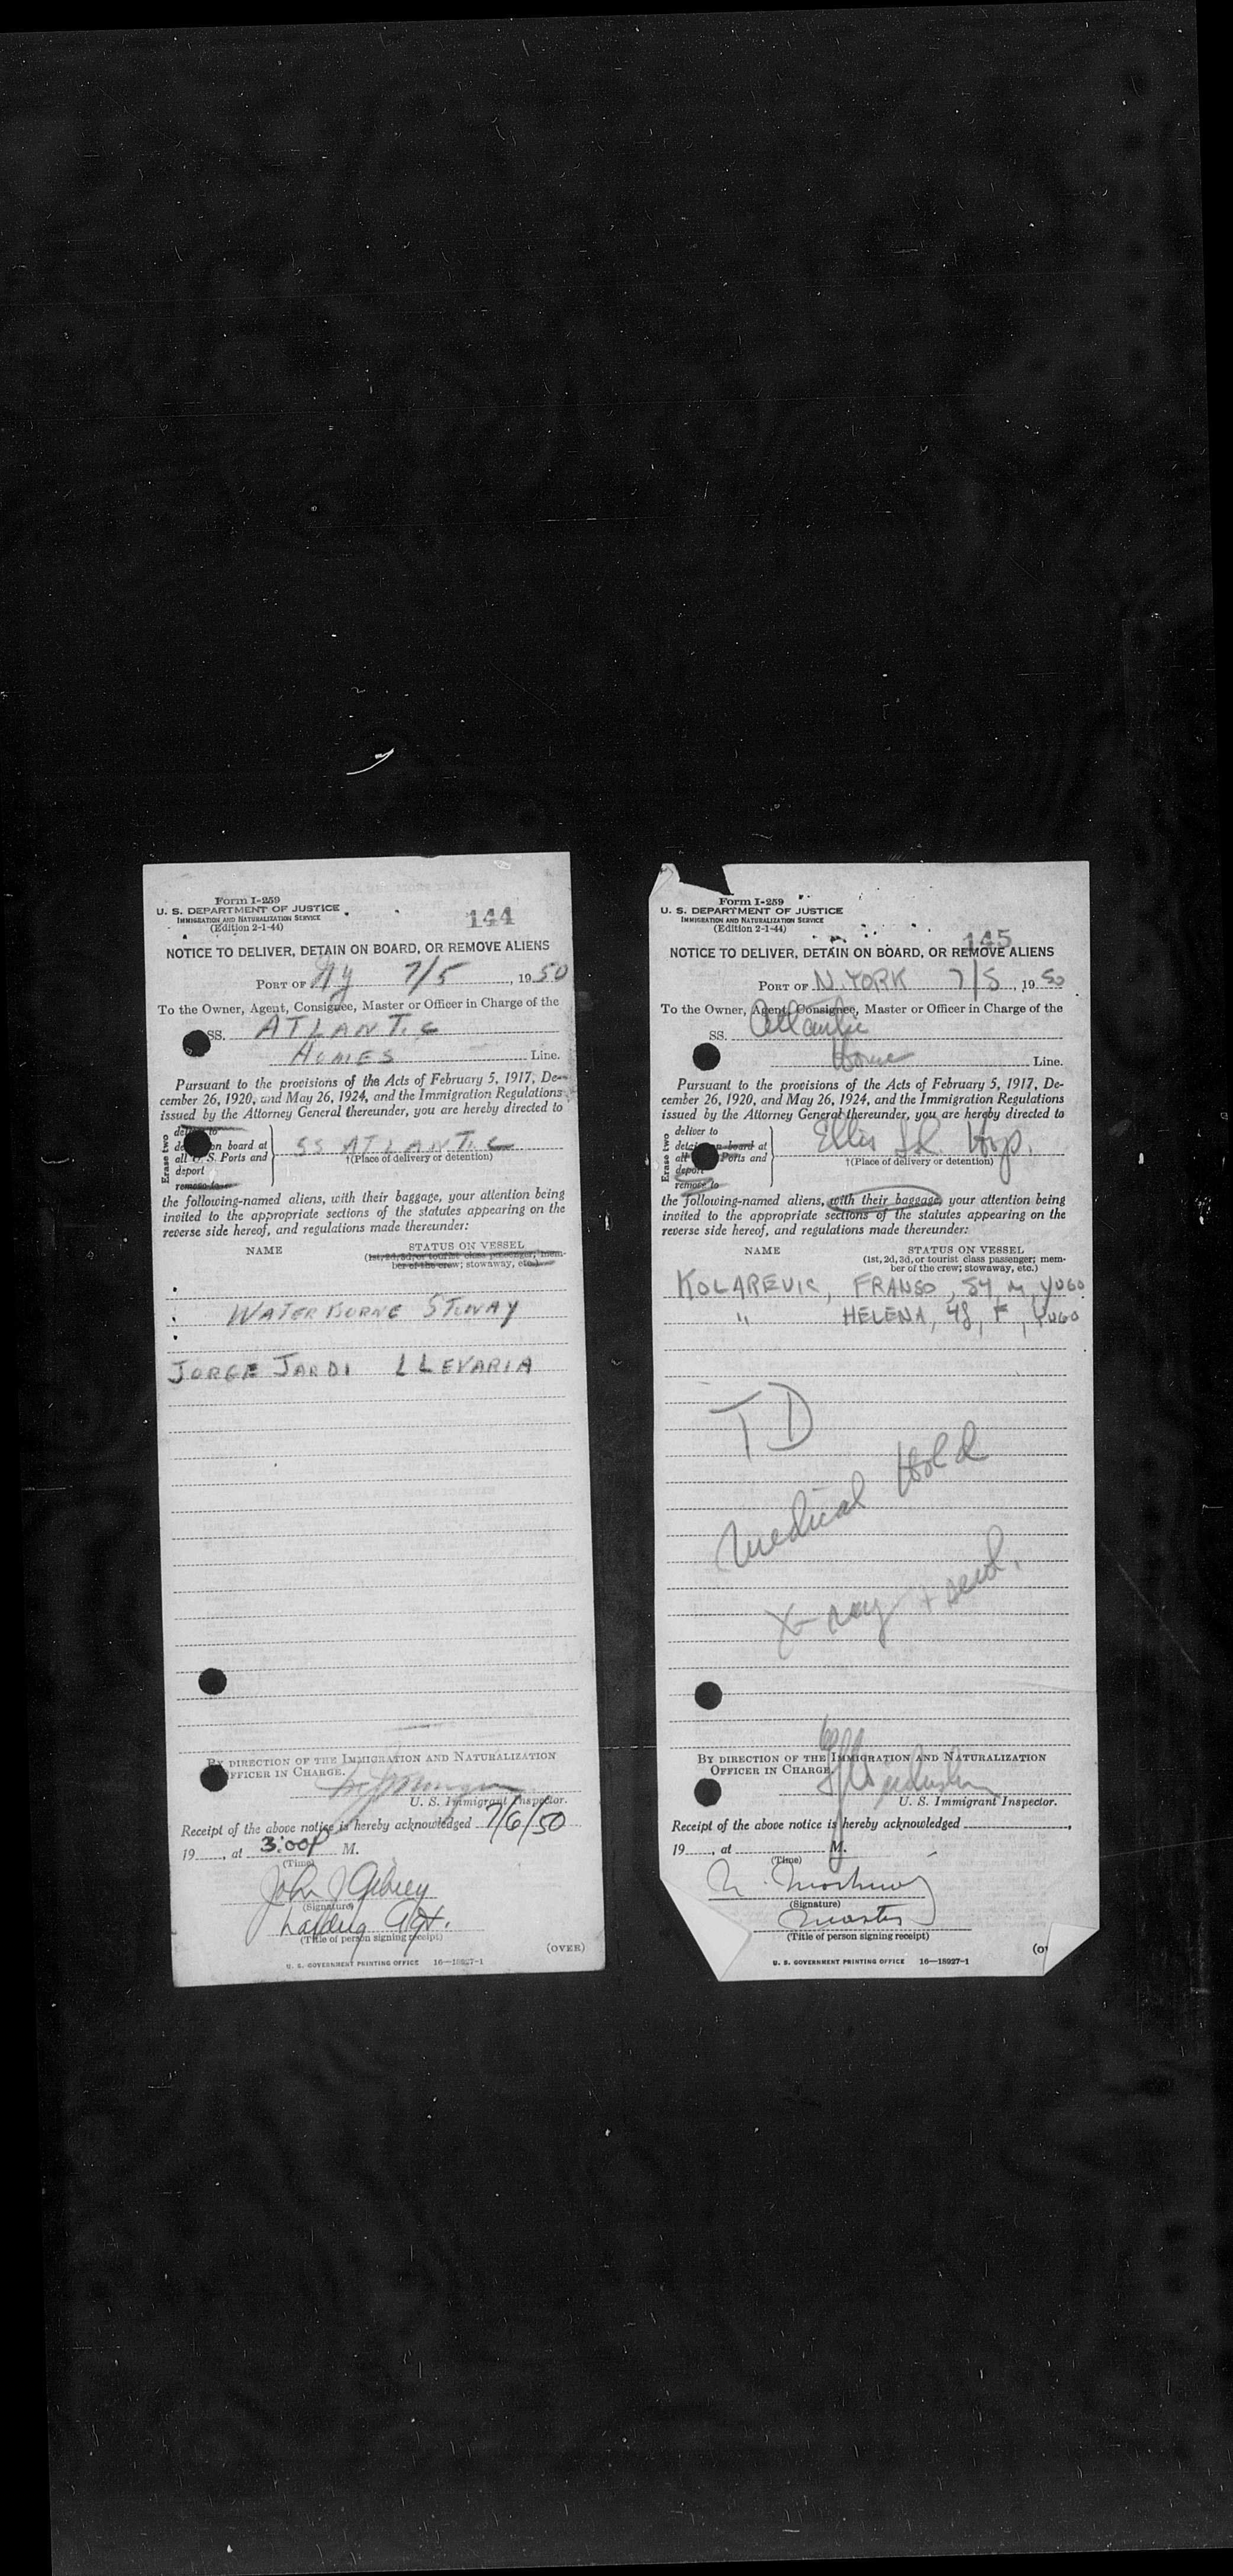 Form I-259
U. S. DEPARTMENT OF JUSTICE
IMMIGRATION AND NATURALIZATION SERVICE
(Edition 2-1-44)
144
NOTICE TO DELIVER, DETAIN ON BOARD, OR REMOVE ALIENS
PORT OF NY 7/5, 1950
To the Owner, Agent, Consignee, Master or Officer in Charge of the
SS. ATLANTIC
HOMES Line.
Pursuant to the provisions of the Acts of February 5, 1917, De-
cember 26, 1920, and May 26, 1924, and the Immigration Regulations
issued by the Attorney General thereunder, you are hereby directed to
Erase two
on board at
all U. S. Ports and
deport
remove to
SS ATLANTIC
†(Place of delivery or detention)
the following-named aliens, with their baggage, your attention being
invited to the appropriate sections of the statutes appearing on the
reverse side hereof, and regulations made thereunder:
NAME STATUS ON VESSEL
(1st, 2d, 3d, or tourist class passenger; mem-
ber of the crew; stowaway, etc.)
WATERBORNE STOWAY
JORGE JARDI LLEVARIA
BY DIRECTION OF THE IMMIGRATION AND NATURALIZATION
OFFICER IN CHARGE.
U. S. Immigrant Inspector.
Receipt of the above notice is hereby acknowledged 7/6/50
19, at 3:00P M.
(Time)
John J
(Signature)
Landing Agt.
(Title of person signing receipt)
(OVER)
U. S. GOVERNMENT PRINTING OFFICE 16—18927-1
Form I-259
U. S. DEPARTMENT OF JUSTICE
IMMIGRATION AND NATURALIZATION SERVICE
(Edition 2-1-44)
145
NOTICE TO DELIVER, DETAIN ON BOARD, OR REMOVE ALIENS
PORT OF N. YORK 7/5, 1950
To the Owner, Agent, Consignee, Master or Officer in Charge of the
SS. Atlantic
Home Line.
Pursuant to the provisions of the Acts of February 5, 1917, De-
cember 26, 1920, and May 26, 1924, and the Immigration Regulations
issued by the Attorney General thereunder, you are hereby directed to
Erase two
deliver to
detain on board at
all U. S. Ports and
deport
remove to
Ellis Isl. Hosp.
†(Place of delivery or detention)
the following-named aliens, with their baggage, your attention being
invited to the appropriate sections of the statutes appearing on the
reverse side hereof, and regulations made thereunder:
NAME STATUS ON VESSEL
(1st, 2d, 3d, or tourist class passenger; mem-
ber of the crew; stowaway, etc.)
KOLAREVIC, FRANSO, 54, M, YUGO
" HELENA, 48, F, YUGO
TD
Medical Hold
X-ray + serol.
BY DIRECTION OF THE IMMIGRATION AND NATURALIZATION
OFFICER IN CHARGE.
U. S. Immigrant Inspector.
Receipt of the above notice is hereby acknowledged,
19, at M.
(Time)
(Signature)
Master
(Title of person signing receipt)
U. S. GOVERNMENT PRINTING OFFICE 16—18927-1